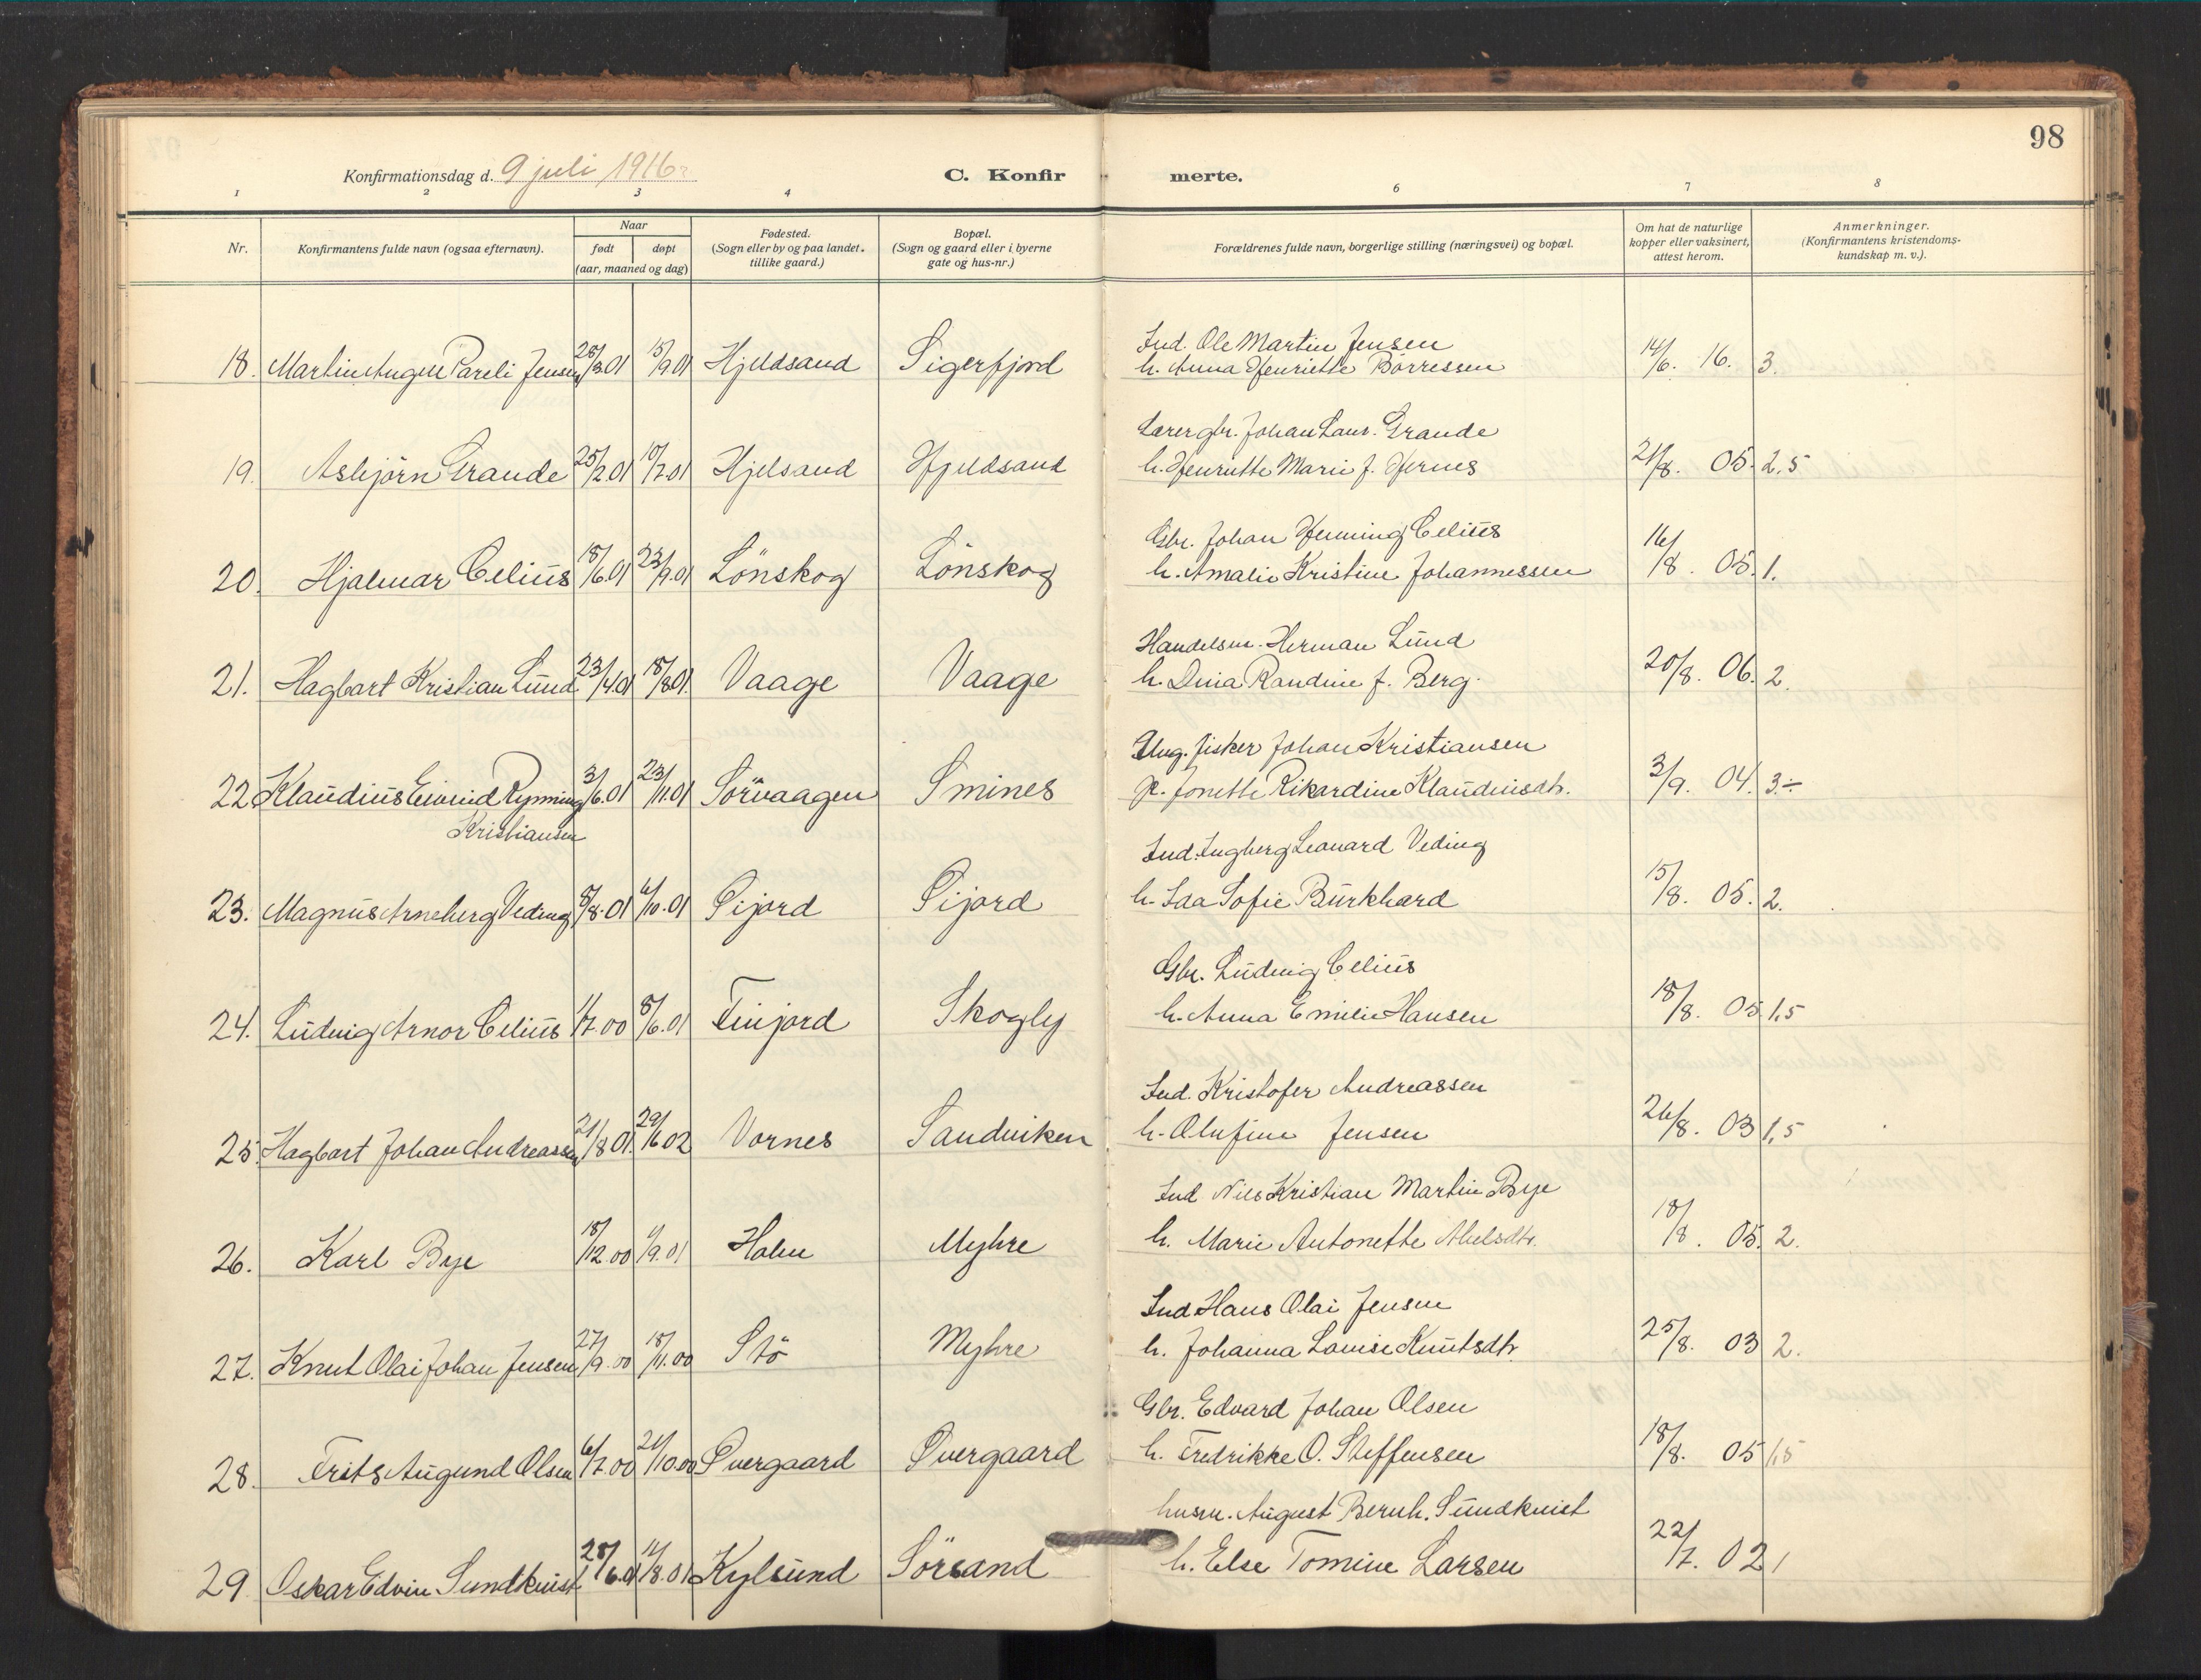 98
Konfirmationsdag d. 9 juli 1916 C. Konfir merte.
1 2 3 4 6 7 8
Nr. Konfirmantens fulde navn (ogsaa efternavn). Naar født døpt (aar, maaned og dag) Fødested. (Sogn eller by og paa landet. tillike gaard.) Bopæl. (Sogn og gaard eller i byerne gate og hus-nr.) Forældrenes fulde navn, borgerlige stilling (næringsvei) og bopæl. Om hat de naturlige kopper eller vaksinert, attest herom. Anmerkninger. (Konfirmantens kristendoms-kundskap m. v.).
Ind. Ole Martin Jensen
18. Martin Pareli Jensen 15/9.01 Hjeldsand Sigerfjord h. Anna Henriette Börressen 14/6. 16. 3.
Lærer gbr. Johan Laur. Grande
19. Asbjörn Grande 25/2.01 10/7.01 Hjelsand Hjeldsand h. Henriette Marie f. Hernes 21/8. 05. 2,5
Gbr. Johan Henning Celius
20. Hjalmar Celius 18/6.01 23/9.01 Lönskog Lönskog h. Amalie Kristine Johannessen 16/8. 05. 1.
Handelsm. Herman Lund
21. Hagbart Kristian Lund 23/4.01 18/8.01. Vaage Vaage h. Dina Randine f. Berg. 20/8. 06. 2.
Ung. fisker Johan Kristiansen
22 Klaudius Eivind Rynning 3/6.01 23/11.01 Sörvaagen Smines p. Jonette Rikardine Klaudiusdtr. 3/9. 04. 3÷
Kristiansen
Ind. Ingberg Leonard Veding
23. Magnus Arneberg Veding 8/8.01 6/10.01 Sijord Sijord h. Ida Sofie Burkhard 15/8. 05. 2.
Gbr. Ludvig Celius
24. Ludvig Arnor Celius 8/6.01 Finjord Skogly h. Anna Emilie Hansen 18/8. 05. 1,5
Ind. Kristofer Andreassen
25. Hagbart Johan Andreassen 21/8 01. 29/6 02 Vornes Sandviken h. Olufine Jensen 26/8. 03 1,5
Ind Nils Kristian Martin Bye
26. Karl Bye 18/12.00 1/9.01 Holm Myhre h. Marie Antonette Abelsdtr. 18/8. 05. 2.
Ind Hans Olai Jensen
27. Knut Olai Johan Jensen 27/9.00 18/11.00 Stö Myhre h. Johanna Lovise Knutsdtr. 25/8. 03 2.
Gbr. Edvard Johan Olsen
28. Frits Augund Olsen 6/7.00 21/10.00 Øvergaard Øvergaard h. Fredrikke O. Steffensen 18/8. 05 1,5
husm. August Bernh. Sundkvist
29. Oskar Edvin Sundkvist 28/6.01 11/8.01 Kylsund Sörsand h. Else Tomine Larsen 22/7. 02 1